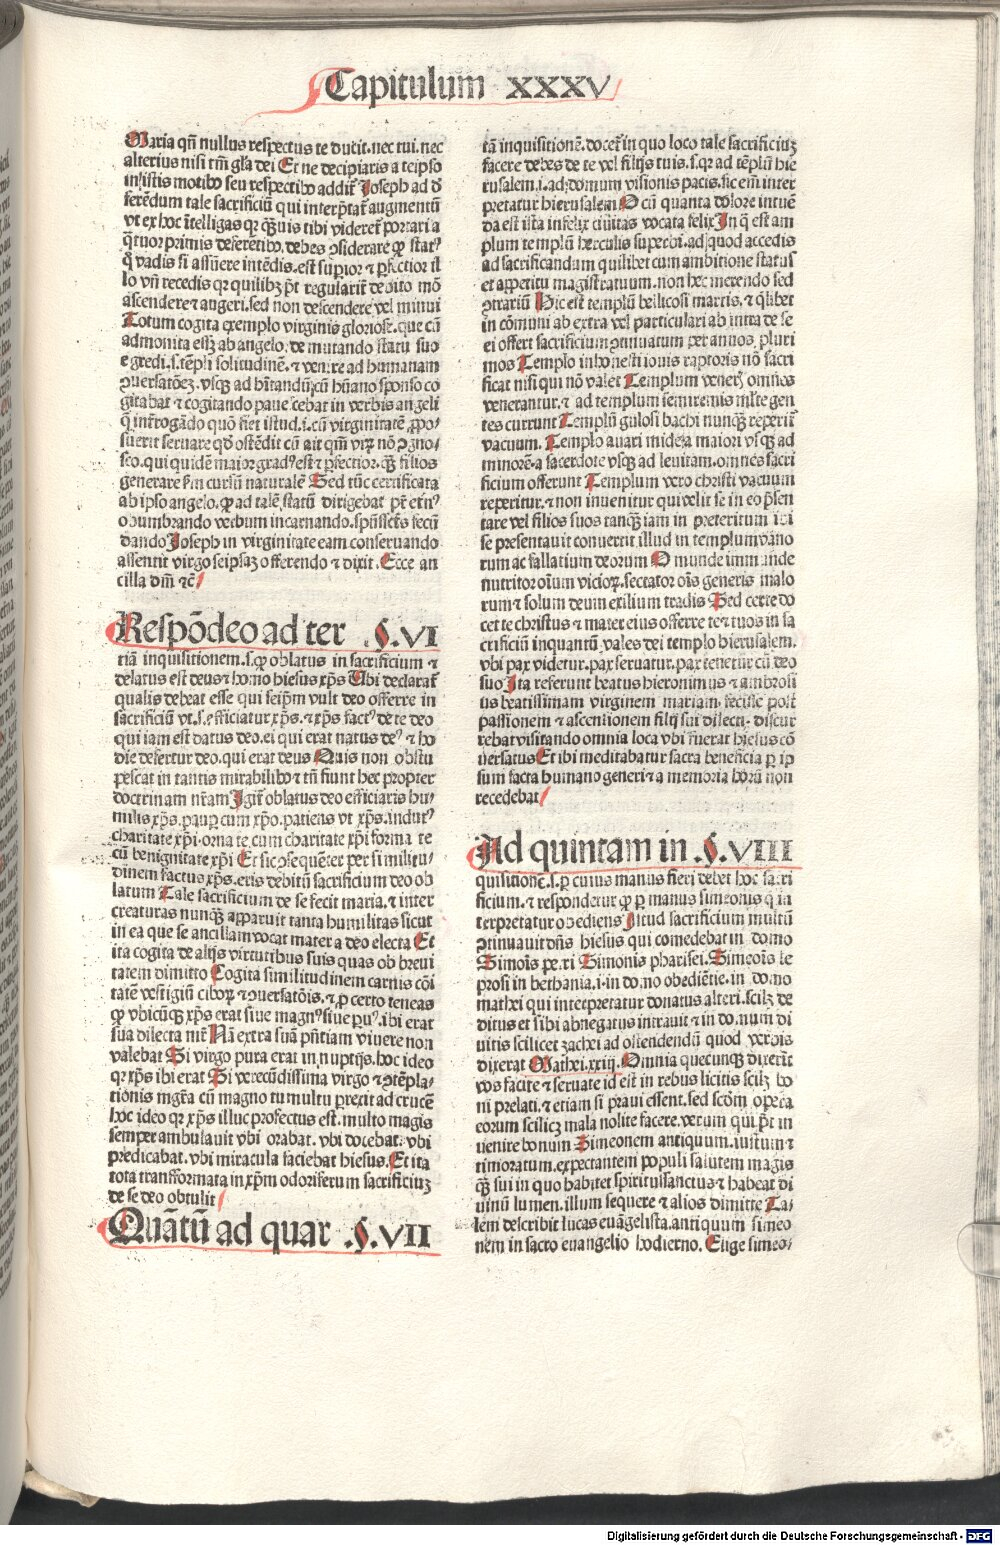 Capitulum XXXV
Maria qñ nullus respectus te ducit. nec tui. nec
alterius nisi tm̃ gl̃a dei Et ne decipiaris a teipso
in istis motibꝰ seu respectibꝰ addit̃ Joseph ad of
ferẽdum tale sacrificiũ qui interp̃tat̃ augmentũ
vt ex hoc ĩtelligas qꝛ q̃uis tibi videret̃ portari a
q̃tuor primis deferẽtibꝰ. debes ꝯsiderare ꝙ statꝰ
q̃ vadis si assũere intẽdis. est suꝑior ⁊ ꝑfectior il
lo vñ recedis qꝛ quilibꝫ p̃t regularit̃ debito mõ
ascendere ⁊ augeri. sed non descendere vel minui
Totum cogita exemplo virginis gloriose. que cũ
admonita esset ab angelo. de mutando statu suo
egredi. s. tẽpli solitudinẽ. ⁊ venire ad humanam
ꝯuersatõeꝫ. vsqꝫ ad h̃itandũ cũ hũano sponso co
gitabat ⁊ cogitando paue cebat in verbis angeli
q̃ int̃rogãdo quõ fiet istud. i. cũ virginitatẽ ꝓpo-
suerit seruare qd̃ ostẽdit cũ ait qm̃ virũ nõ ꝯgno-
sco. qui quidẽ maior gradꝰ est ⁊ ꝑfectior. qꝫ filios
generare sm̃ cursũ naturalẽ Sed tũc certificata
ab ipso angelo. ꝙ ad talẽ statũ dirigebat pr̃ etnꝰ
obumbrando verbum incarnando. sp̃ussct̃s fecũ
dando Joseph in virginitate eam conseruando
assentit virgo seipsaꝫ offerendo ⁊ dixit. Ecce an
cilla dñi ⁊c̃
Respõdeo ad ter §. VI
tiã inquisitionem. s. ꝙ oblatus in sacrificium ⁊
delatus est deus ⁊ homo hiesus xp̃s Vbi declarat̃
qualis debeat esse qui seip̃m vult deo offerre in
sacrificiũ vt. s. efficiatur xp̃s. ⁊ xp̃s factꝰ de te deo
qui iam est datus deo. ei qui erat natus deꝰ ⁊ ho
die defertur deo. qui erat deus Quis non obstu
pescat in tantis mirabilibꝰ ⁊ tñ fiunt hec propter
doctrinam nr̃am Igit̃ oblatus deo efficiaris hu-
milis xp̃s. pauꝑ cum xp̃o. patiens vt xp̃s. indutꝰ
charitate xp̃i. orna te cum charitate xp̃i forma te
cũ benignitate xp̃i Et sic ꝯsequẽter per similitu-
dinem factus xp̃s. eris debitũ sacrificium deo ob
latum Tale sacrificium de se fecit maria. ⁊ inter
creaturas nunqꝫ apparuit tanta humilitas sicut
in ea que se ancillam vocat mater a deo electa Et
ita cogita de alijs virtutibus suis quas ob breui
tatem dimitto Cogita similitudinem carnis cõi
tatẽ vestigiũ ciborꝝ ⁊ ꝯuersatõis. ⁊ ꝑ certo teneas
ꝙ vbicũqꝫ xp̃s erat siue magnꝰ siue ꝑuꝰ. ibi erat
sua dilecta mr̃ Nã extra suã pñtiam viuere non
valebat Si virgo pura erat in nuptijs. hoc ideo
qꝛ xp̃s ibi erat Si verecũdissima virgo ⁊ ꝯtẽpla-
tionis mgr̃a cũ magno tumultu ꝑrexit ad crucẽ
hoc ideo qꝛ xp̃s illuc profectus est. multo magis
semper ambulauit vbi orabat. vbi docebat. vbi
predicabat. vbi miracula faciebat hiesus. Et ita
tota transformata in xp̃m odoriferum sacrificiuꝫ
de se deo obtulit
Quãtũ ad quar §. VII
tã inquisitionẽ. docet̃ in quo loco tale sacrificiuꝫ
facere debes de te vel filijs tuis. s. qꝛ ad tẽplũ hie
rusalem. i. ad domum visionis pacis. sic em̃ inter
pretatur hierusalem O cũ quanta dolore intuẽ
da est ista infelix ciuitas vocata felix In q̃ est am
plum templũ herculis superbi. ad quod accedis
ad sacrificandum quilibet cum ambitione status
et appetitu magistratuum. non hec merendo sed
ꝯtrariũ Hic est templũ bellicosi martis. ⁊ q̃libet
in cõmuni ab extra vel particulari ab intra de se
ei offert sacrificium ꝯtinuatum per annos pluri
mos Templo inhonesti iouis raptoris nõ sacri
ficat nisi qui nõ valet Templum venerꝭ omnes
venerantur. ⁊ ad templum semiremis ml̃te gen
tes currunt Templũ gulosi bachi nunqꝫ reperit̃
vacuum. Templo auari mideꝫ a maiori vsqꝫ ad
minorẽ. a sacerdote vsqꝫ ad leuitam. omnes sacri
ficium offerunt Templum vero christi vacuum
reperitur. ⁊ non inuenitur qui velit se in eo p̃sen
tare vel filios suos tanqꝫ iam in preteritum ibi
se presentauit conuertit illud in templum vano
rum ac fallatium deorum O munde immunde
nutritor oĩum viciorꝝ. sectator oĩs generis malo
rum ⁊ solum deum exilium tradis Sed certe do
cet te christus ⁊ mater eius offerre te ⁊ tuos in sa
crificiũ inquantũ vales dei templo hierusalem.
vbi pax videtur. pax seruatur. pax tenetur cũ deo
suo Ita referunt beatus hieronimus ⁊ ambrosi
us beatissimam virginem mariam fecisse post
passionem ⁊ ascensionem filij sui dilecti. discur
rebat visitando omnia loca vbi fuerat hiesus cõ
uersatus Et ibi meditabatur sacra beneficia ꝑ ip
sum facta humano generi ⁊ a memoria horũ non
recedebat
Ad quintam in §. VIII
quisitionẽ. s. ꝑ cuius manus fieri debet hoc sacri
ficium. ⁊ respondetur ꝙ ꝑ manus simeonis q̃ in
terpretatur obediens Istud sacrificium multũ
ꝯtinuauit dñs hiesus qui comedebat in domo
Simõis petri Simonis pharisei. Simeõis le
prosi in bethania. i. in domo obediẽtie. in domo
mathei qui interpretatur donatus alteri. scilꝫ de
ditus et sibi abnegatus intrauit ⁊ in domum di
uitis scilicet zachei ad ostendendũ quod verbis
dixerat Mathei. xxiij. Omnia quecunqꝫ dixerĩt
vos facite ⁊ seruate id est in rebus licitis scilꝫ bo
ni prelati. ⁊ etiam si praui essent. sed scðm opera
eorum scilicꝫ mala nolite facere. verum qui p̃t in
uenire bonum Simeonem antiquum. iustum ⁊
timoratum. expectantem populi salutem magis
qꝫ sui in quo habitet spiritussanctus ⁊ habeat di
uinũ lumen. illum sequere ⁊ alios dimitte Ta-
lem describit lucas euãgelista. antiquum simeo
nem in sacro euangelio hodierno. Euge simeo-
Digitalisierung gefördert durch die Deutsche Forschungsgemeinschaft - DFG